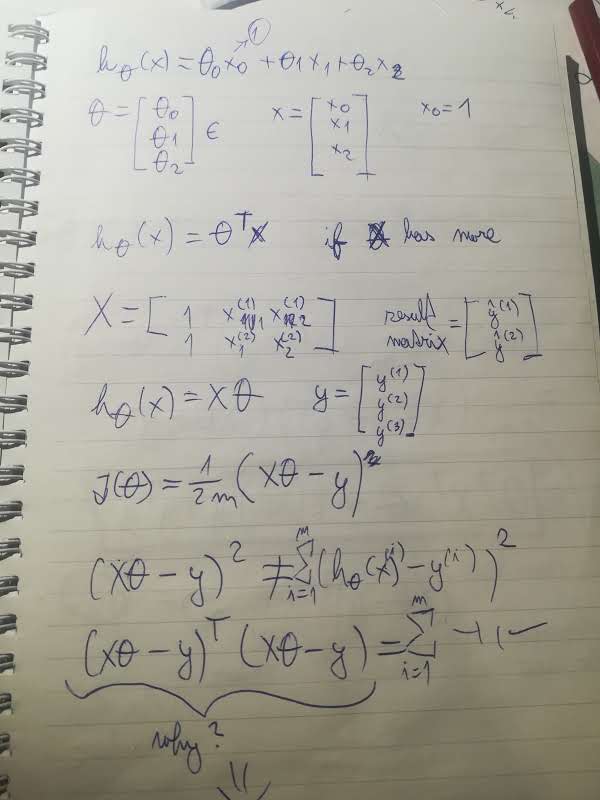 ①
h_θ(x) = θ₀x₀ + θ₁x₁ + θ₂x₂
θ = [θ₀ θ₁ θ₂] ∈ x = [x₀ x₁ x₂] x₀ = 1
h_θ(x) = θᵀx if X has more
X = [1 x₁⁽¹⁾ x₂⁽¹⁾
1 x₁⁽²⁾ x₂⁽²⁾] result matrix = [ŷ⁽¹⁾ ŷ⁽²⁾]
h_θ(x) = Xθ y = [y⁽¹⁾ y⁽²⁾ y⁽³⁾]
J(θ) = 1/2m (Xθ − y)
(Xθ − y)² ≠ Σᵢ₌₁ᵐ (h_θ(x)⁽ⁱ⁾ − y⁽ⁱ⁾)²
(Xθ − y)ᵀ (Xθ − y) = Σᵢ₌₁ᵐ −11−
why?